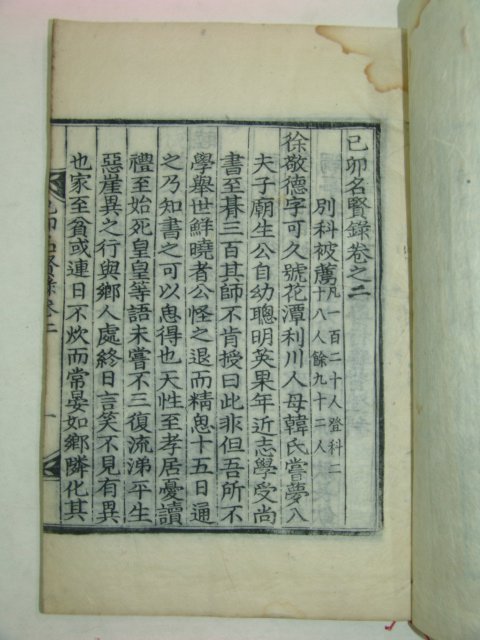 己卯名賢錄卷之二
別科被薦凡一百二十人登科二十八人餘九十二人
徐敬德字可久號花潭利川人母韓氏嘗夢入
夫子廟生公自幼聰明英果年近志學受尚
書至朞三百其師不肯授曰此非但吾所不
學擧世鮮曉者公怪之退而精思十五日通
之乃知書之可以思得也天性至孝居憂讀
禮至始死皇皇等語未嘗不三復流涕平生
惡崖異之行與鄉人處終日言笑不見有異
也家至貧或連日不炊而常晏如鄉隣化其
己卯名賢錄卷二
一